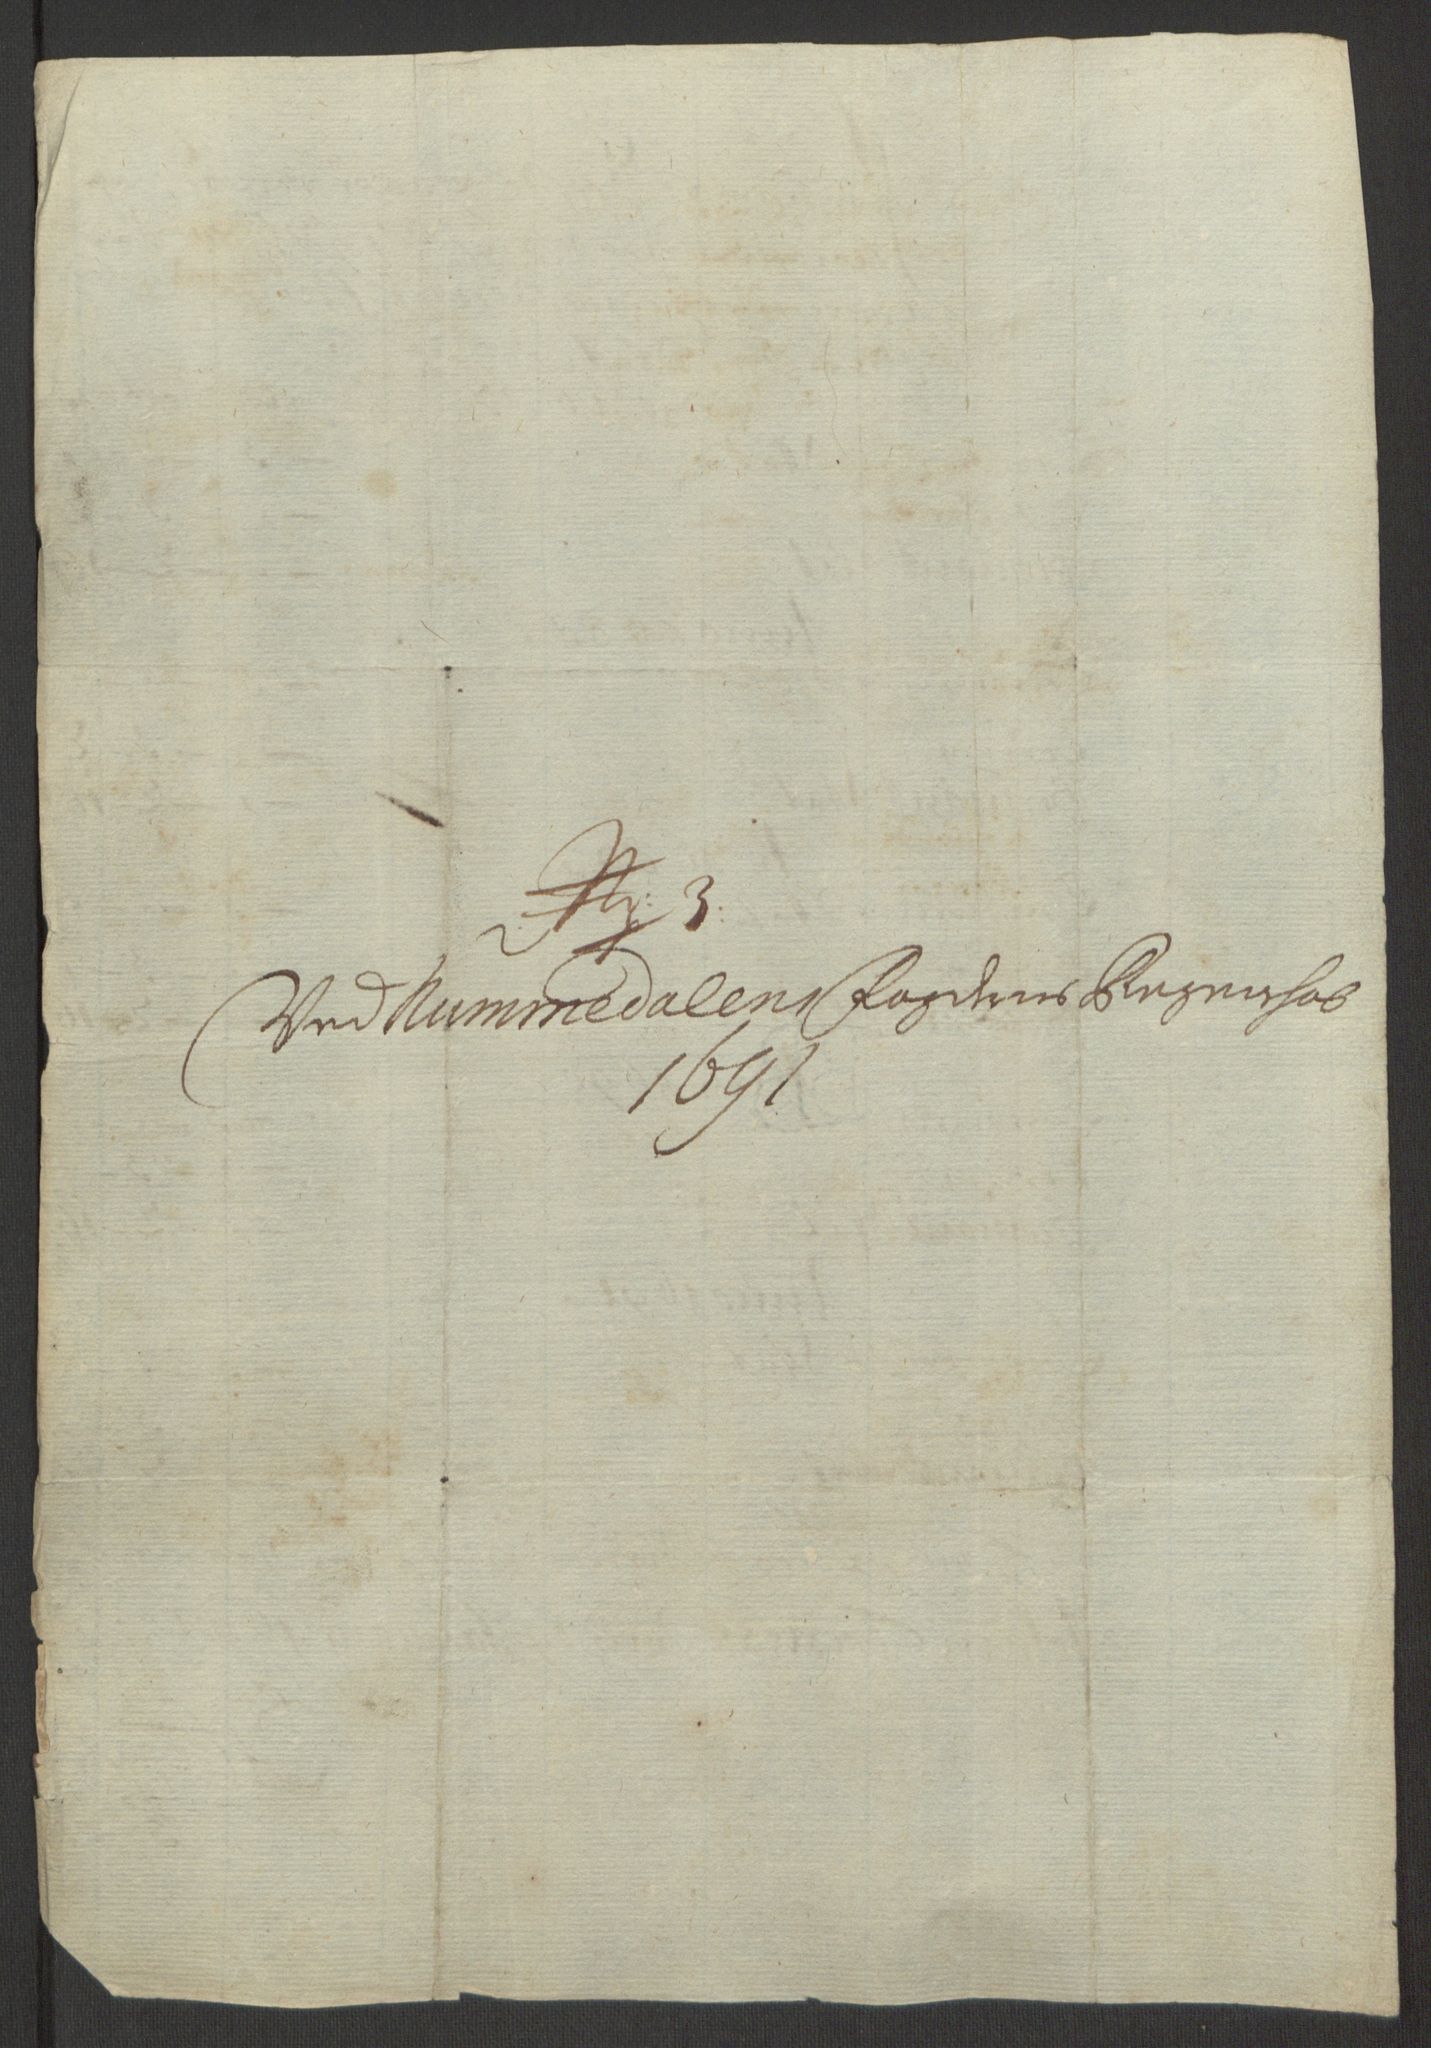 No: 3.
Ved Nummedalens Fogderies Regenskab
1691